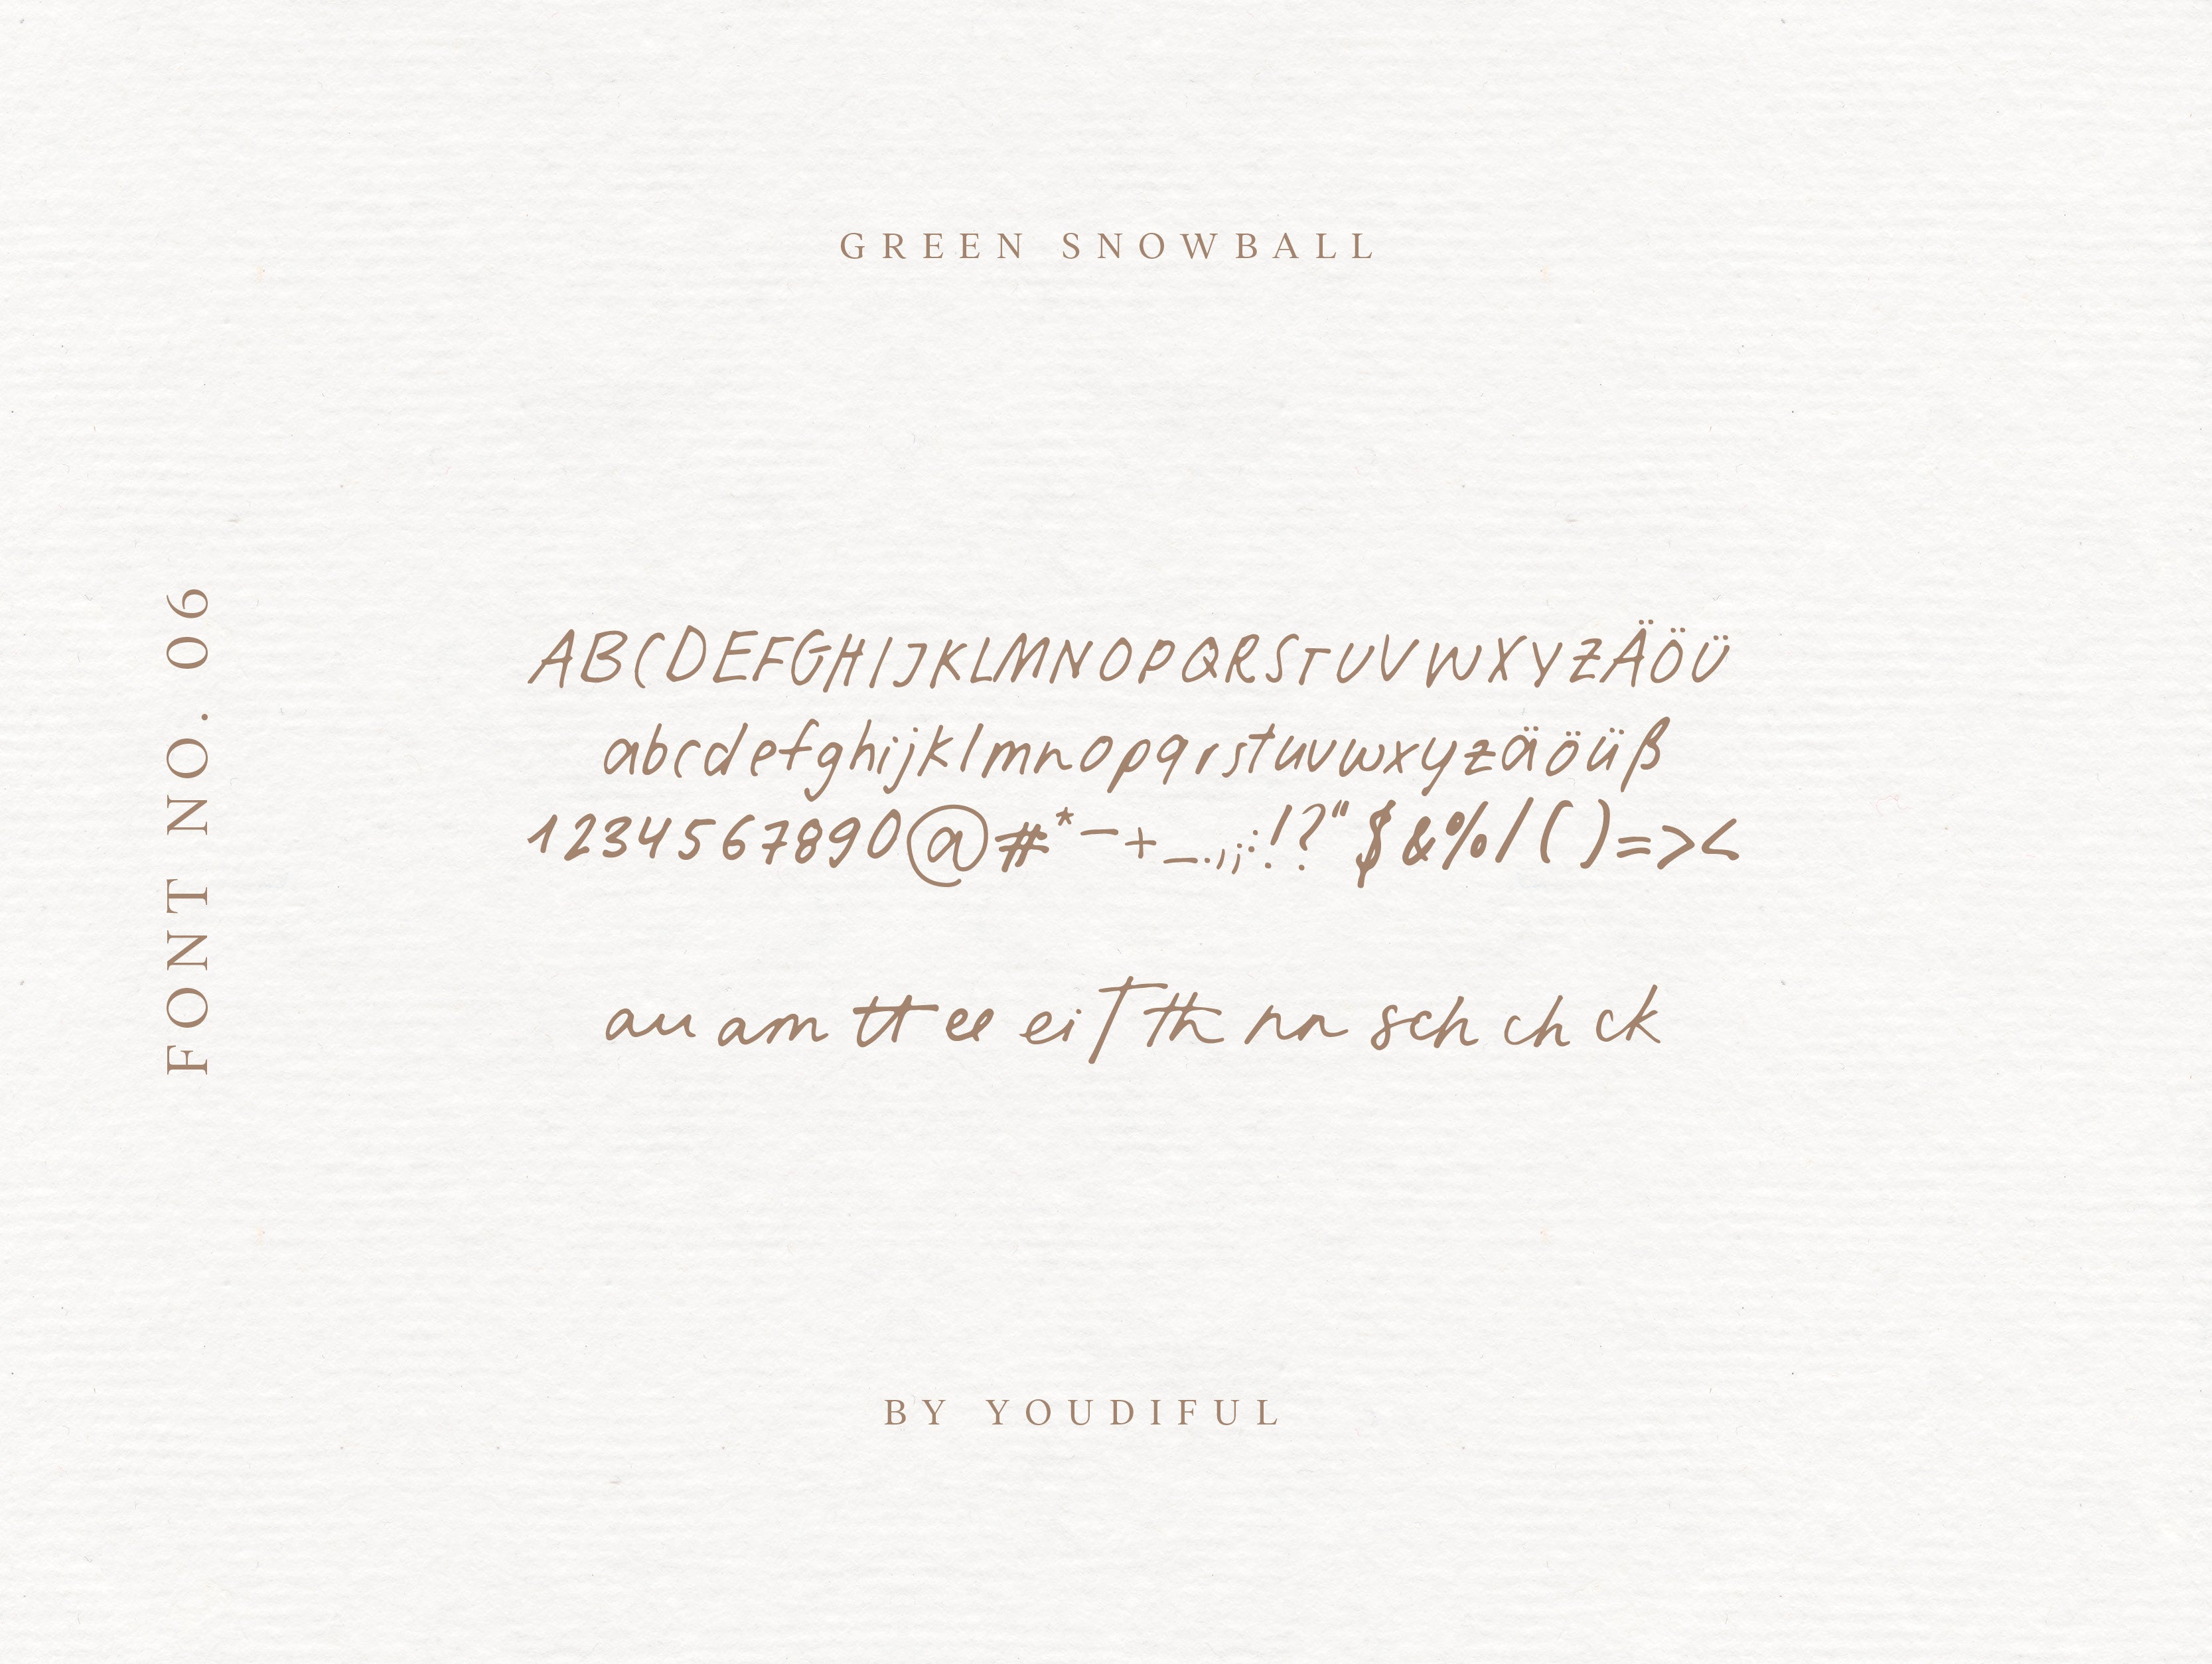 GREEN SNOWBALL
FONT NO. 06
ABCDEFGHIJKLMNOPQRSTUVWXYZÄÖÜ
abcdefghijklmnopqrstuvwxyzäöüß
1234567890@#*-+_.,;:!?"$&%/()=><
au am tt ee ei T th nn sch ch ck
BY YOUDIFUL